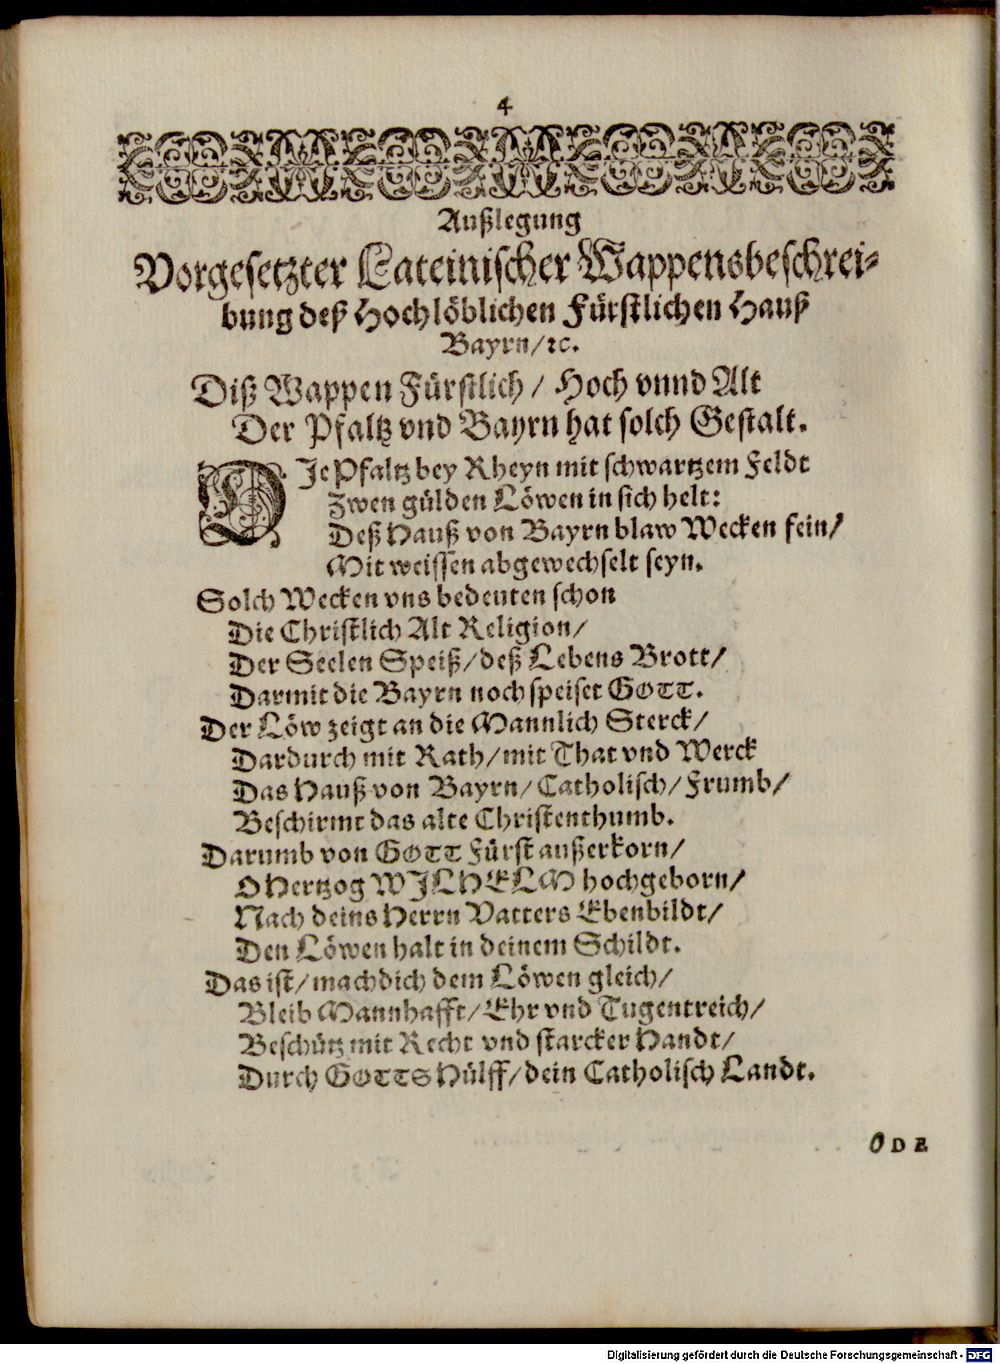 4
Außlegung
Vorgesetzter Lateinischer Wappensbeschrei-
bung deß Hochlöblichen Fürstlichen Hauß
Bayrn/ꝛc.
Diß Wappen Fürstlich / Hoch vnnd Alt
Der Pfaltz vnd Bayrn hat solch Gestalt.
DJe Pfaltz bey Rheyn mit schwartzem Feldt
Zwen gülden Löwen in sich helt:
Deß Hauß von Bayrn blaw Wecken fein/
Mit weissen abgewechselt seyn.
Solch Wecken vns bedeuten schon
Die Christlich Alt Religion/
Der Seelen Speiß/deß Lebens Brott/
Darmit die Bayrn noch speiset GOTT.
Der Löw zeigt an die Mannlich Sterck/
Dardurch mit Rath/mit That vnd Werck
Das Hauß von Bayrn/Catholisch/Frumb/
Beschirmt das alte Christenthumb.
Darumb von GOTT Fürst außerkorn/
O Hertzog WJLHELM hochgeborn/
Nach deins Herrn Vatters Ebenbildt/
Den Löwen halt in deinem Schildt.
Das ist/mach dich dem Löwen gleich/
Bleib Mannhafft/Ehr vnd Tugentreich/
Beschütz mit Recht vnd starcker Handt/
Durch GOTTS Hülff/dein Catholisch Landt.
ODE
Digitalisierung gefördert durch die Deutsche Forschungsgemeinschaft - DFG